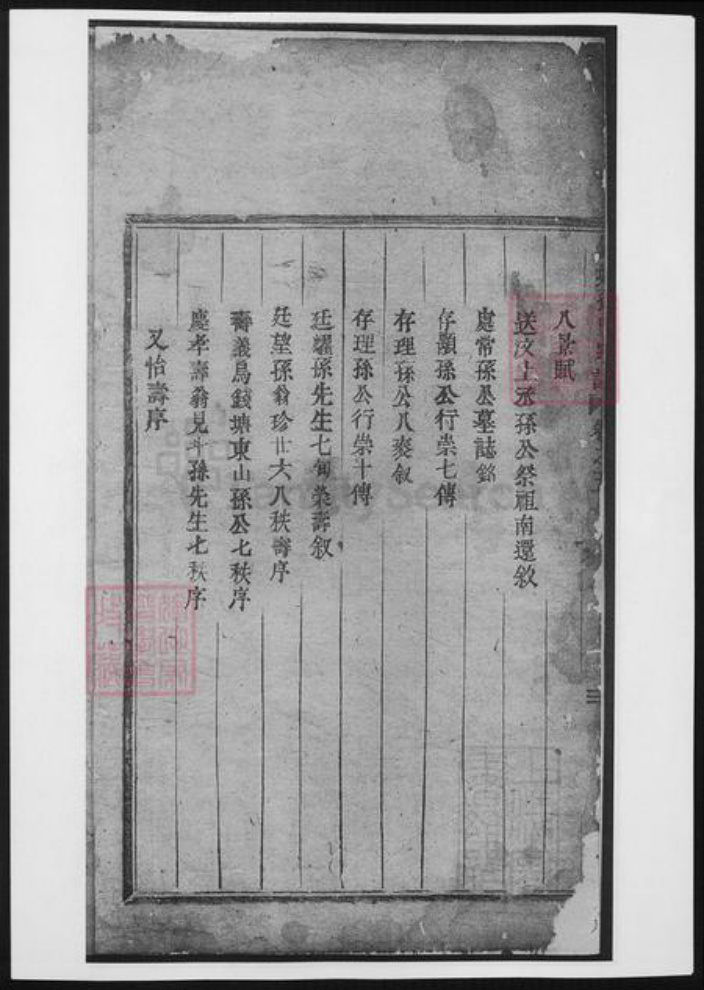 八景賦
送汶上丞孫公祭祖南還敘
處常孫公墓誌銘
存顯孫公行崇七傳
存理孫公八袠叙
存理孫公行崇十傳
廷耀孫先生七旬榮壽叙
廷望孫翁珍廿六八秩壽序
壽義烏錢塘東山孫公七秩序
慶孝壽翁見斗孫先生七秩序
又怡壽序